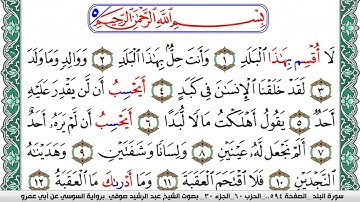 بِسْمِ ٱللَّهِ ٱلرَّحْمَٰنِ ٱلرَّحِيمِ ٥
لَا أُقْسِم بِهَٰذَا ٱلْبَلَدِ ١ وَأَنتَ حِلٌّۢ بِهَٰذَا ٱلْبَلَدِ ٢ وَوَالِدٍ وَمَا وَلَدَ
٣ لَقَدْ خَلَقْنَا ٱلْإِنسَٰنَ فِى كَبَدٍ ٤ أَيَحْسِبُ أَن لَّن يَقْدِرَ عَلَيْهِ
أَحَدٌ ٥ يَقُولُ أَهْلَكْتُ مَالًا لُّبَدًا ٦ أَيَحْسِبُ أَن لَّمْ يَرَهُۥ أَحَدٌ
٧ أَلَمْ نَجْعَل لَّهُۥ عَيْنَيْنِ ٨ وَلِسَانًا وَشَفَتَيْنِ ٩ وَهَدَيْنَٰهُ
ٱلنَّجْدَيْنِ ١٠ فَلَا ٱقْتَحَمَ ٱلْعَقَبَةَ ١١ وَمَا أَدْرِىٰكَ مَا ٱلْعَقَبَةُ ١٢
سورة البلد الصفحة ٥٩٤ .. الحزب ٦٠ الجزء ٣٠ بصوت الشيخ عبد الرشيد صوفي برواية السوسي عن أبي عمرو